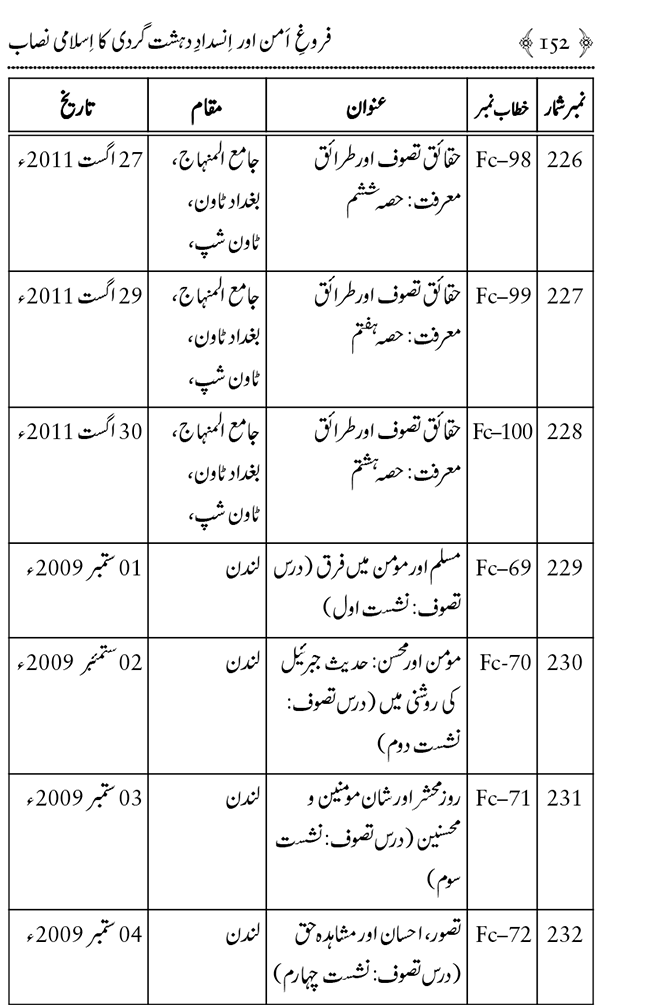 ﴿ 152 ﴾ فروغِ اَمن اور اِنسدادِ دہشت گردی کا اِسلامی نصاب
نمبر شمار خطاب نمبر عنوان مقام تاریخ
226 Fc–98 حقائق تصوف اور طرائق جامع المنہاج، 27 اگست 2011ء
معرفت: حصہ ششم بغداد ٹاون،
ٹاون شپ،
227 Fc–99 حقائق تصوف اور طرائق جامع المنہاج، 29 اگست 2011ء
معرفت: حصہ ہفتم بغداد ٹاون،
ٹاون شپ،
228 Fc–100 حقائق تصوف اور طرائق جامع المنہاج، 30 اگست 2011ء
معرفت: حصہ ہشتم بغداد ٹاون،
ٹاون شپ،
229 Fc–69 مسلم اور مومن میں فرق (درس لندن 01 ستمبر 2009ء
تصوف: نشست اول)
230 Fc-70 مومن اور محسن: حدیث جبرئیل لندن 02 ستمبر 2009ء
کی روشنی میں (درس تصوف:
نشست دوم)
231 Fc–71 روز محشر اور شان مومنین و لندن 03 ستمبر 2009ء
محسنین (درس تصوف: نشست
سوم)
232 Fc–72 تصور، احسان اور مشاہدہ حق لندن 04 ستمبر 2009ء
(درس تصوف: نشست چہارم)